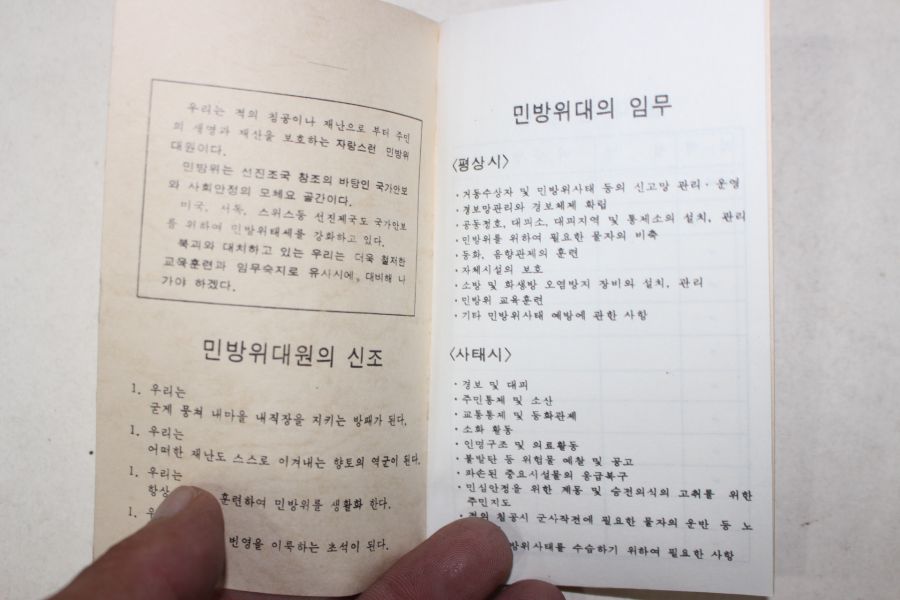 우리는 적의 침공이나 재난으로 부터 주민
의 생명과 재산을 보호하는 자랑스런 민방위
대원이다.
민방위는 선진조국 창조의 바탕인 국가안보
와 사회안정의 모체요 골간이다.
미국, 서독, 스위스등 선진제국도 국가안보
를 위하여 민방위태세를 강화하고 있다.
북괴와 대치하고 있는 우리는 더욱 철저한
교육훈련과 임무숙지로 유사시에 대비해 나
가야 하겠다.
민방위대원의 신조
1. 우리는
굳게 뭉쳐 내마을 내직장을 지키는 방패가 된다.
1. 우리는
어떠한 재난도 스스로 이겨내는 향토의 역군이 된다.
1. 우리는
항상 훈련하여 민방위를 생활화 한다.
1.
번영을 이룩하는 초석이 된다.
민방위대의 임무
〈평상시〉
· 거동수상자 및 민방위사태 등의 신고망 관리· 운영
· 경보망관리와 경보체제 확립
· 공동정호, 대피소, 대피지역 및 통제소의 설치, 관리
· 민방위를 위하여 필요한 물자의 비축
· 등화, 음향관제의 훈련
· 자체시설의 보호
· 소방 및 화생방 오염방지 장비의 설치, 관리
· 민방위 교육훈련
· 기타 민방위사태 예방에 관한 사항
〈사태시〉
· 경보 및 대피
· 주민통제 및 소산
· 교통통제 및 등화관제
· 소화 활동
· 인명구조 및 의료활동
· 불발탄 등 위험물 예찰 및 공고
· 파손된 중요시설물의 응급복구
· 민심안정을 위한 계몽 및 승전의식의 고취를 위한
주민지도
· 적의 침공시 군사작전에 필요한 물자의 운반 등 노
민방위사태를 수습하기 위하여 필요한 사항